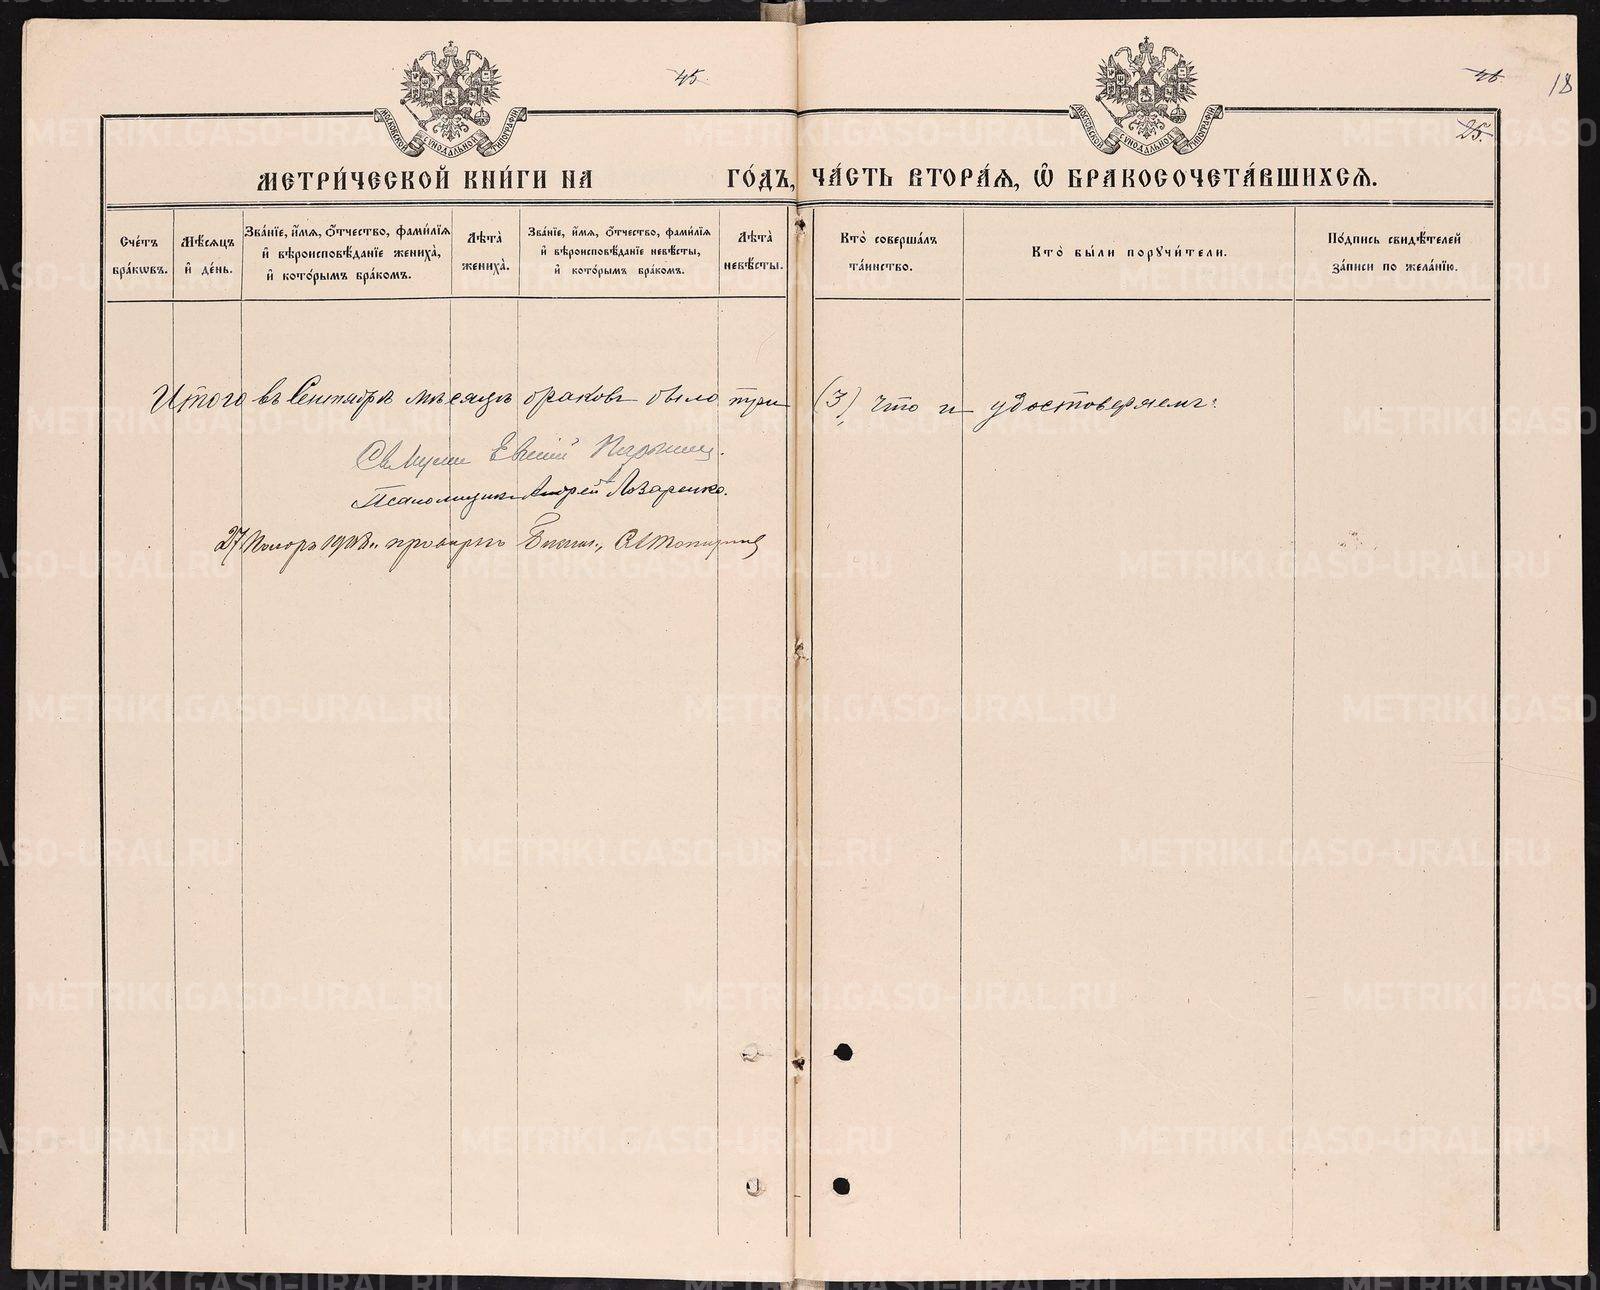 45.
46
18
25.
МОСКОВСКОЙ СѴНОДАЛЬНОЙ ТИПОГРАФІИ
МОСКОВСКОЙ СѴНОДАЛЬНОЙ ТИПОГРАФІИ
МЕТРИ́ЧЕСКОЙ КНИ́ГИ НА ГО́ДЪ, ЧА́СТЬ ВТОРА́Я, Ѽ БРАКОСОЧЕТА́ВШИХСЯ.
Сче́тъ бра́кѡвъ.
Мѣ́сяцъ и҆ де́нь.
Зва́нїе, и҆́мя, ѻ҆́тчество, фами́лїя и҆ вѣроисповѣ́данїе жениха̀, и҆ кото́рымъ бра́комъ.
Лѣ́та̀ жениха̀.
Зва́нїе, и҆́мя, ѻ҆́тчество, фами́лїя и҆ вѣроисповѣ́данїе невѣ́сты, и҆ кото́рымъ бра́комъ.
Лѣ́та̀ невѣ́сты.
Кто̀ соверша́лъ та́инство.
Кто̀ бы́ли порꙋчи́тели.
По́дпись свидѣ́телей за́писи по жела́нїю.
Итого въ Сентябрѣ мѣсяцѣ браковъ было три (3) что и удостовѣряемъ:
Псаломщикъ Андрей Лазаренко.
27 1908
METRIKI.GASO-URAL.RU